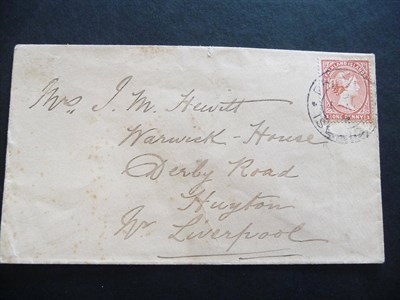 Mrs J. M. Hewitt
Warwick-House
Derby Road
Huyton
Nr Liverpool
ONE PENNY